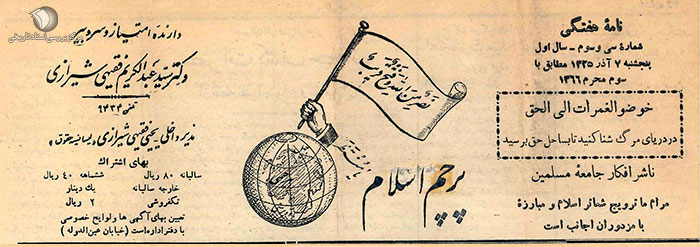 نامهٔ هفتگی
شمارهٔ سی و سوم - سال اول
پنجشنبه ۷ آذر ۱۳۲۵ مطابق با
سوم محرم ۱۳۶۶
خوضو الغمرات الی الحق
در دریای مرگ شنا کنید تا بساحل حق برسید
ناشر افکار جامعهٔ مسلمین
مرام ما ترویج شعائر اسلام و مبارزهٔ
با مزدوران اجانب است
نصر من الله و فتح قریب
پرچم اسلام
دارندهٔ امتیاز و سردبیر
دکتر سید عبدالکریم فقیهی شیرازی
تلفن ۹۴۳۴
مدیر داخلی یحیی فقیهی شیرازی «لیسانسیه حقوق»
بهای اشتراک
سالیانه ۸۰ ریال ششماهه ۴۰ ریال
خارجه سالیانه یک دینار
تکفروشی ۲ ریال
تعیین بهای آگهی ها و لوایح خصوصی
با دفتر اداره است (خیابان عین الدوله)
مرکز بررسی اسناد تاریخی